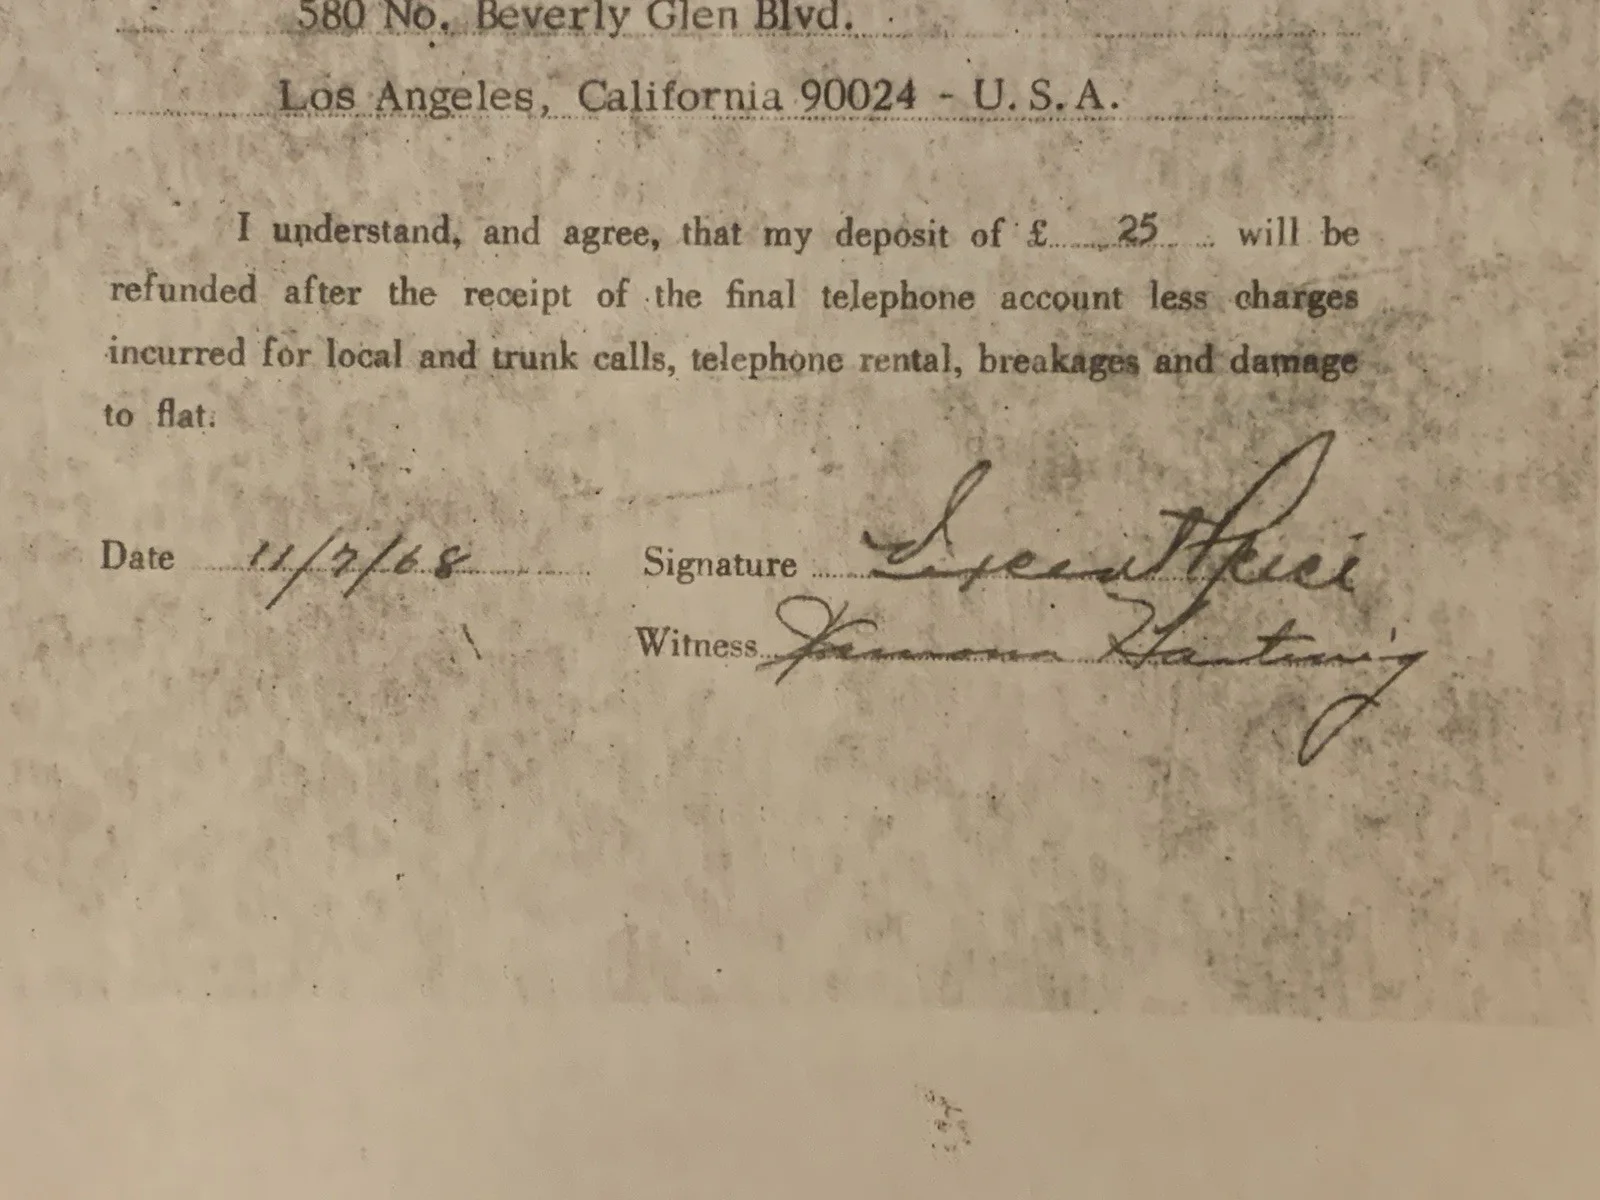 580 No. Beverly Glen Blvd.
Los Angeles, California 90024 - U.S.A.
I understand, and agree, that my deposit of £ 25 will be
refunded after the receipt of the final telephone account less charges
incurred for local and trunk calls, telephone rental, breakages and damage
to flat.
Date 11/7/68 Signature Vincent Price
Witness Hartwig